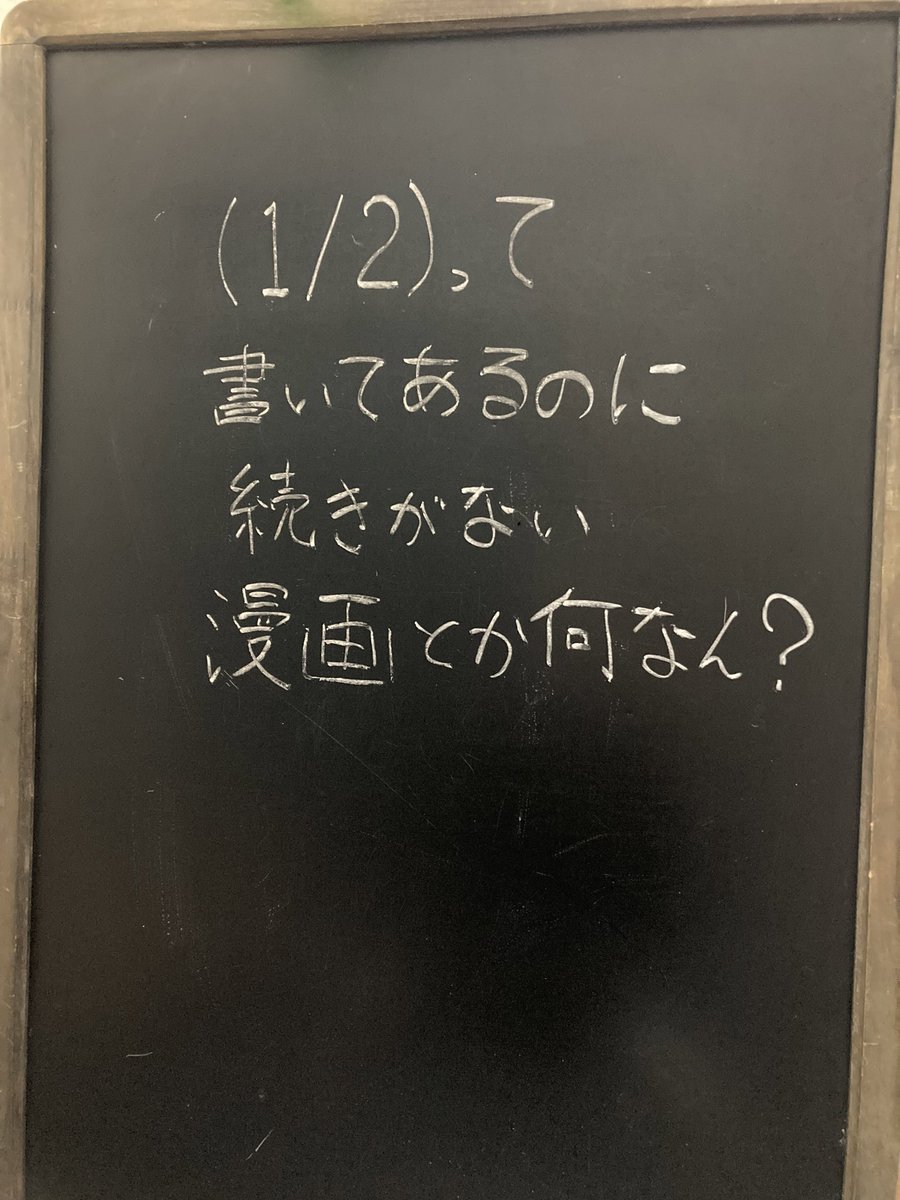 (1/2)って
書いてあるのに
続きがない
漫画とか何なん?